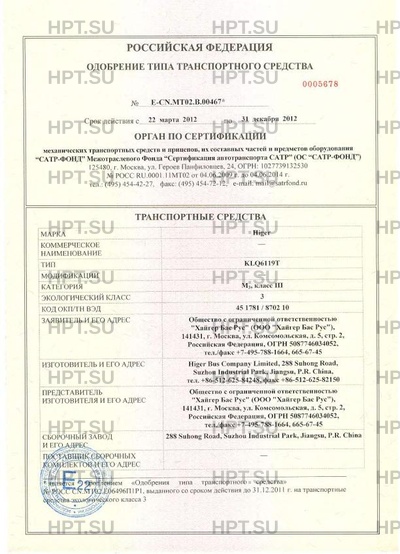 HPT.SU HPT.SU HPT.SU
РОССИЙСКАЯ ФЕДЕРАЦИЯ
ОДОБРЕНИЕ ТИПА ТРАНСПОРТНОГО СРЕДСТВА
0005678
№ E-CN.MT02.B.00467*
Срок действия с 22 марта 2012 по 31 декабря 2012
ОРГАН ПО СЕРТИФИКАЦИИ
механических транспортных средств и прицепов, их составных частей и предметов оборудования
"САТР-ФОНД" Межотраслевого Фонда "Сертификация автотранспорта САТР" (ОС "САТР-ФОНД")
125480, г. Москва, ул. Героев Панфиловцев, 24, ОГРН 1027739132530
№ РОСС RU.0001.11МТ02 от 04.06.2009 до 04.06.2014 г.
тел.: (495) 454-42-27, факс: (495) 454-72-12, e-mail: mail@satrfond.ru
ТРАНСПОРТНЫЕ СРЕДСТВА
МАРКА Higer
КОММЕРЧЕСКОЕ НАИМЕНОВАНИЕ —
ТИП KLQ6119T
МОДИФИКАЦИИ —
КАТЕГОРИЯ M₃, класс III
ЭКОЛОГИЧЕСКИЙ КЛАСС 3
КОД ОКП/ТН ВЭД 45 1781 / 8702 10
ЗАЯВИТЕЛЬ И ЕГО АДРЕС Общество с ограниченной ответственностью
"Хайгер Бас Рус" (ООО "Хайгер Бас Рус"),
141431, г. Москва, ул. Комсомольская, д. 5, стр. 2,
Российская Федерация, ОГРН 5087746034052,
тел./факс +7-495-788-1664, 665-67-45
ИЗГОТОВИТЕЛЬ И ЕГО АДРЕС Higer Bus Company Limited, 288 Suhong Road,
Suzhou Industrial Park, Jiangsu, P.R. China,
тел. +86-512-625-84248, факс +86-512-625-82150
ПРЕДСТАВИТЕЛЬ Общество с ограниченной ответственностью
ИЗГОТОВИТЕЛЯ И ЕГО АДРЕС "Хайгер Бас Рус" (ООО "Хайгер Бас Рус"),
141431, г. Москва, ул. Комсомольская, д. 5, стр. 2,
Российская Федерация, ОГРН 5087746034052,
тел./факс +7-495-788-1664, 665-67-45
СБОРОЧНЫЙ ЗАВОД 288 Suhong Road, Suzhou Industrial Park, Jiangsu, P.R. China
И ЕГО АДРЕС
ПОСТАВЩИК СБОРОЧНЫХ —
КОМПЛЕКТОВ И ЕГО АДРЕС
E 22
«Одобрения типа транспортного средства»
выданного со сроком действия до 31.12.2011 г. на транспортные
средства экологического класса 3